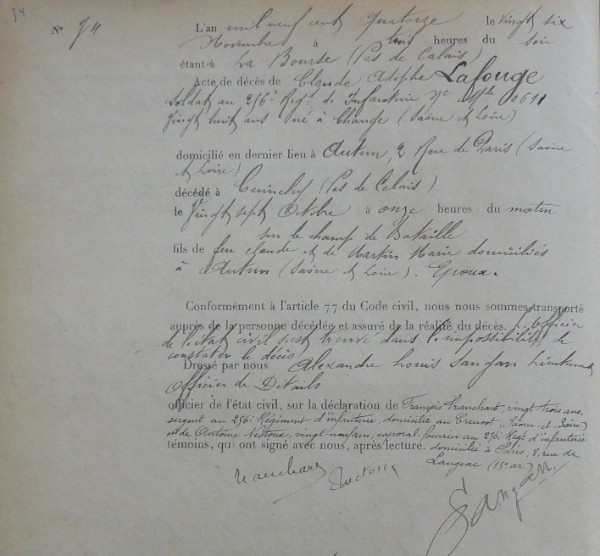 54
N° 74 L'an mil neuf cent quatorze le vingt six
Novembre à trois heures du soir
étant à La Bourse (Pas de Calais)
Acte de décès de Claude Adolphe Lafouge
soldat au 256e Regt de Infanterie Mle 0611
Vingt huit ans né à Change (Saône et Loire)
domicilié en dernier lieu à Autun, 2 Rue de Paris (Saône
et Loire)
décédé à Cuinchy (Pas de Calais)
le Vingt sept Octobre à onze heures du matin
sur le champ de Bataille
fils de feu Claude et de Martin Marie domiciliés
à Autun (Saône et Loire). Epoux.
Conformément à l'article 77 du Code civil, nous nous sommes transporté
auprès de la personne décédée et assuré de la réalité du décès. L'officier
de l'état civil s'est trouvé dans l'impossibilité de
constater le décès
Dressé par nous Alexandre Louis Sangan Lieutenant
Officier de Détails
officier de l'état civil, sur la déclaration de François Tranchart, vingt trois ans,
sergent au 256e Régiment d'infanterie, domicilié au Creusot (Saône et Loire)
et de Antoine Nectoux, vingt neuf ans, caporal fourrier au 256 Regt d'infanterie
témoins, qui ont signé avec nous, après lecture. domicilié à Paris, 8, rue de
Langeac (15e ar.)
Tranchart Nectoux
Sangan